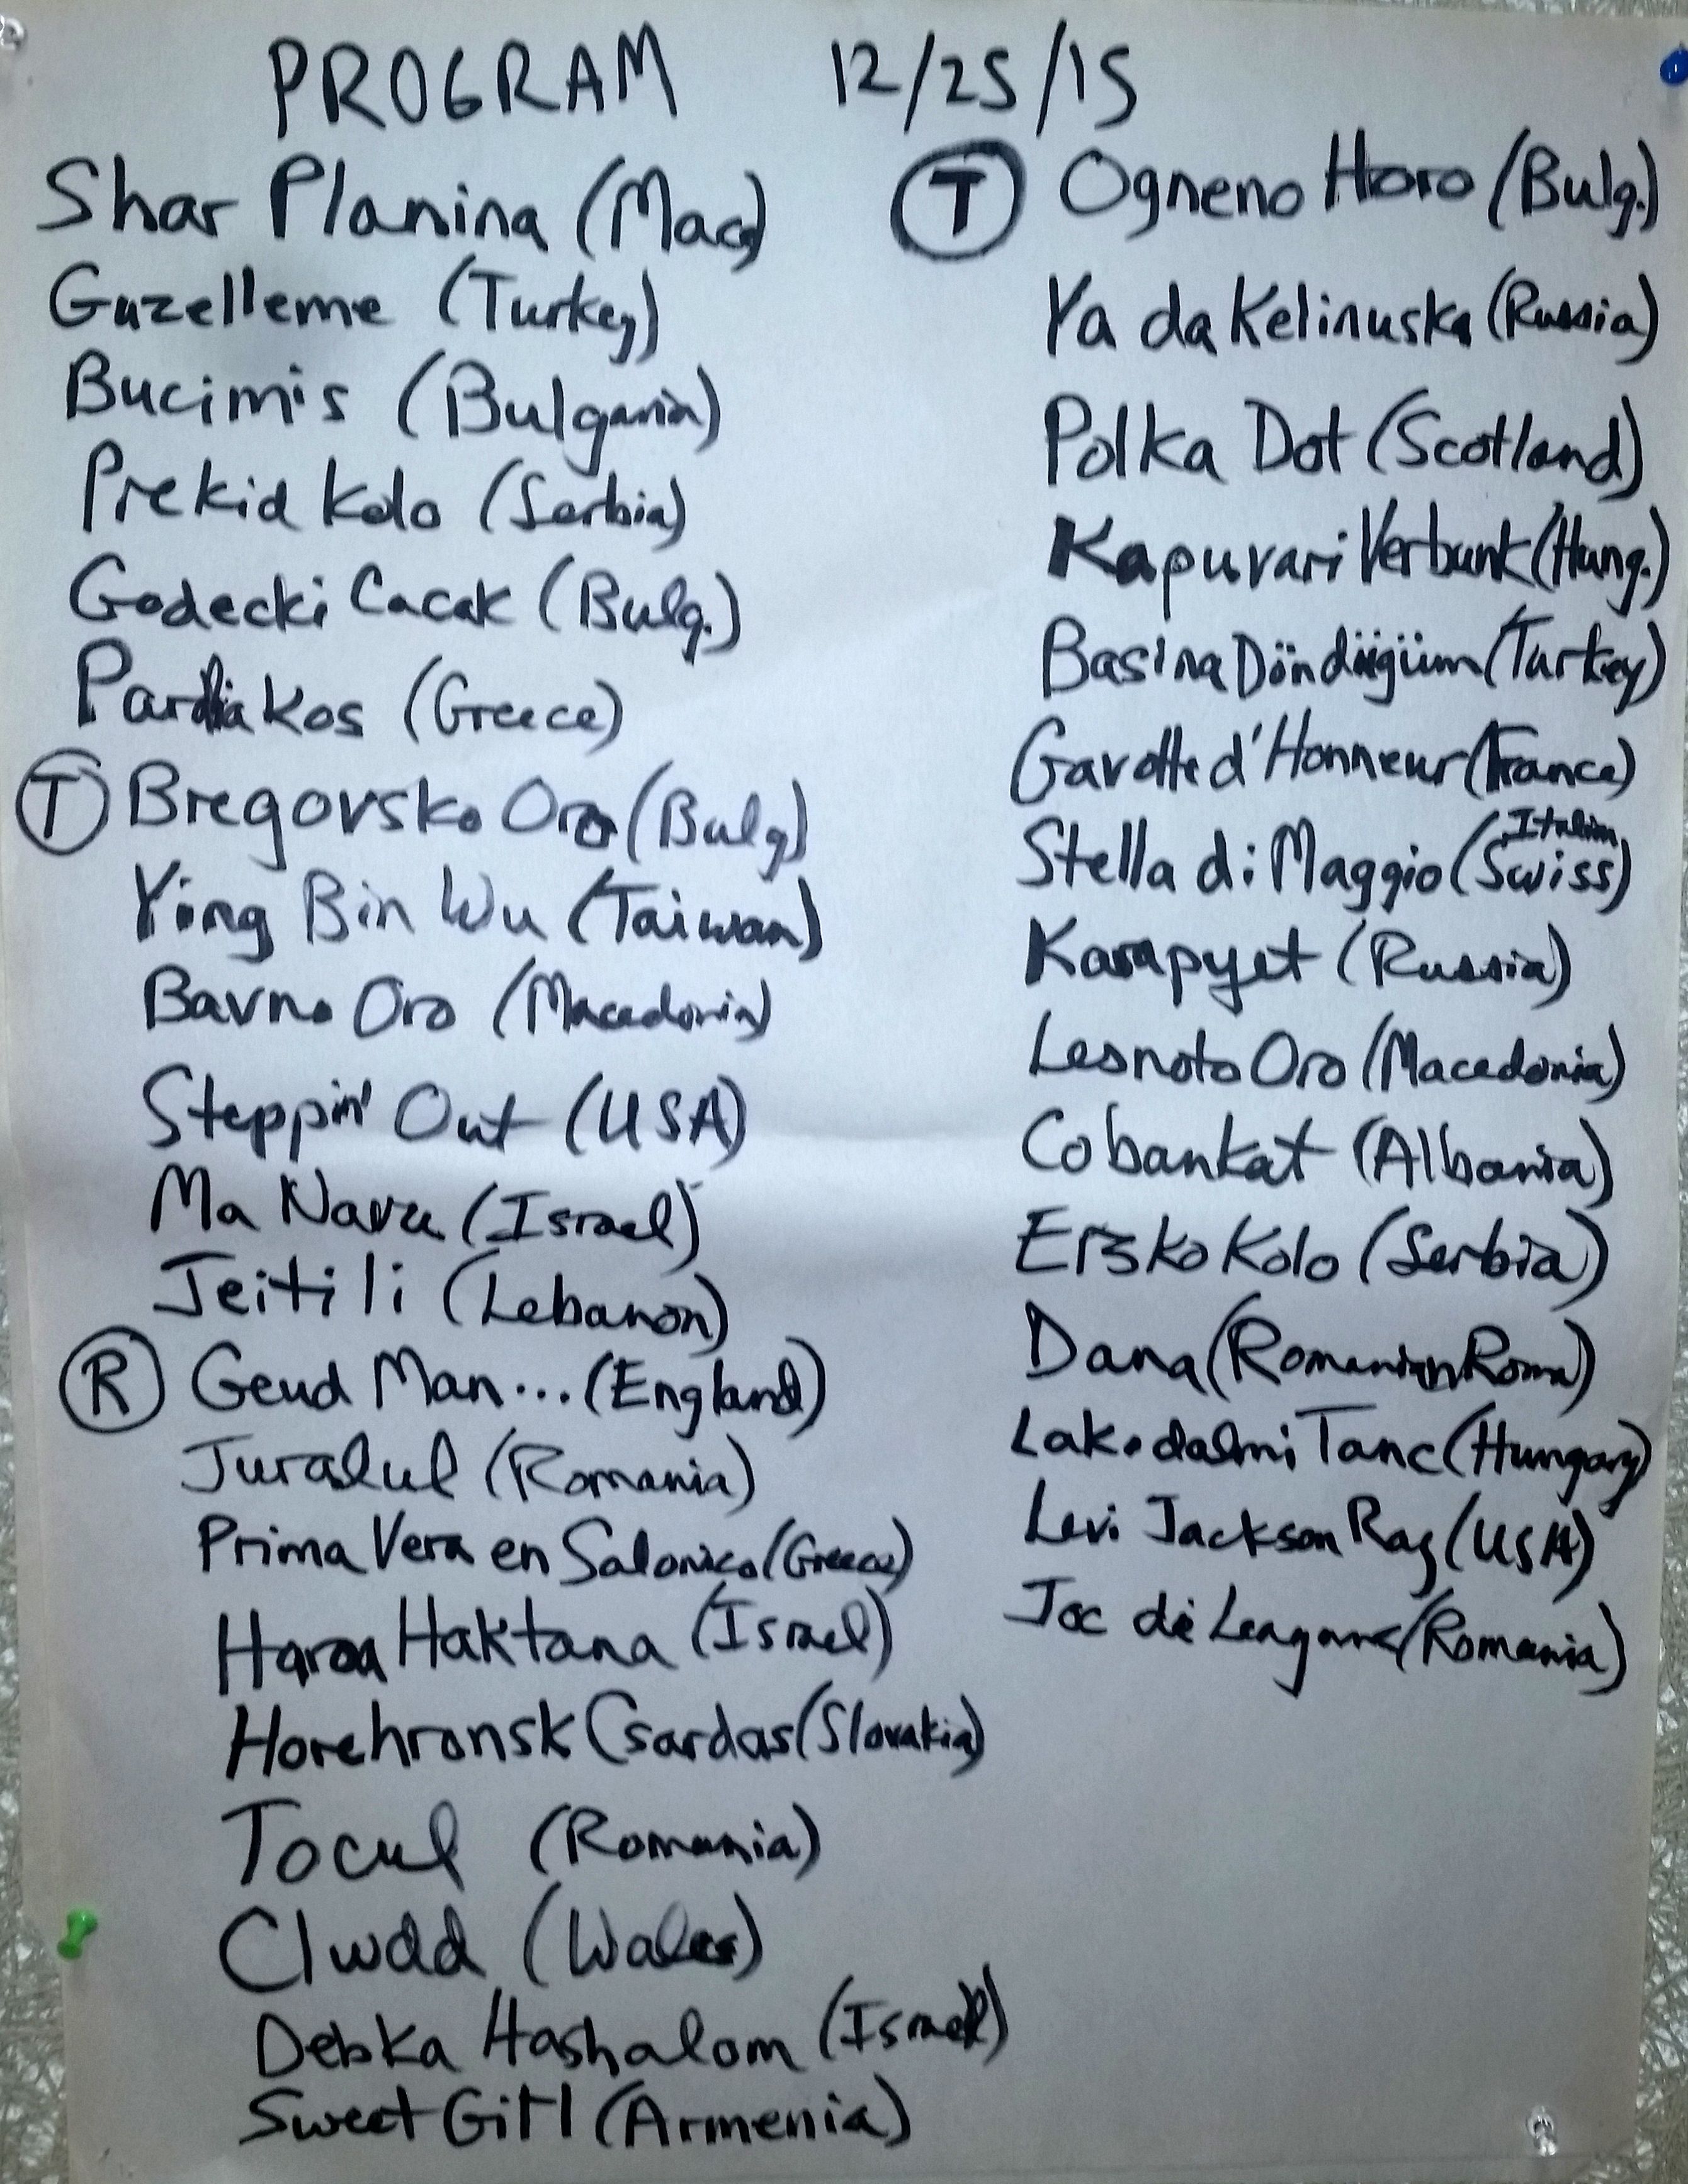 PROGRAM 12/25/15
Shar Planina (Mac)
Guzelleme (Turkey)
Bucimis (Bulgaria)
Prekid Kolo (Serbia)
Godecki Cacak (Bulg.)
Pardiakos (Greece)
T Bregovsko Oro (Bulg)
Ying Bin Wu (Taiwan)
Bavno Oro (Macedonia)
Steppin' Out (USA)
Ma Navu (Israel)
Jeitili (Lebanon)
R Geud Man... (England)
Juralul (Romania)
Prima Vera en Salonico (Greece)
Haroa Haktana (Israel)
Horehronsk Csardas (Slovakia)
Tocul (Romania)
Clwdd (Wales)
Debka Hashalom (Israel)
Sweet Girl (Armenia)
T Ogneno Horo (Bulg.)
Ya da Kelinuska (Russia)
Polka Dot (Scotland)
Kapuvari Verbunk (Hung.)
Basina Döndügüm (Turkey)
Gavotte d'Honneur (France)
Stella di Maggio (Italian Swiss)
Karapyet (Russia)
Lesnoto Oro (Macedonia)
Cobankat (Albania)
Ersko Kolo (Serbia)
Dana (Romanian Roma)
Lakodalmi Tanc (Hungary)
Levi Jackson Rag (USA)
Joc de Leagane (Romania)